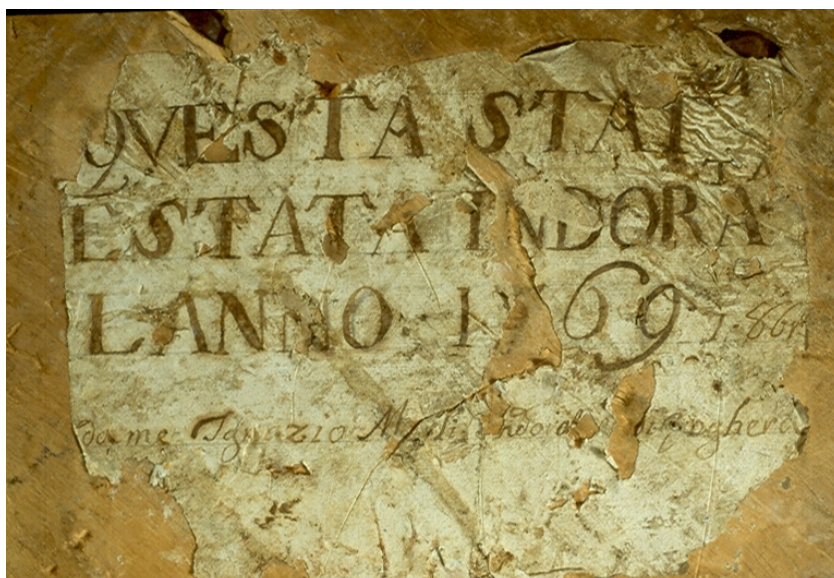 QVESTA STAT
TA
ESTATA INDORA
LANNO 1769
da me Ignazio